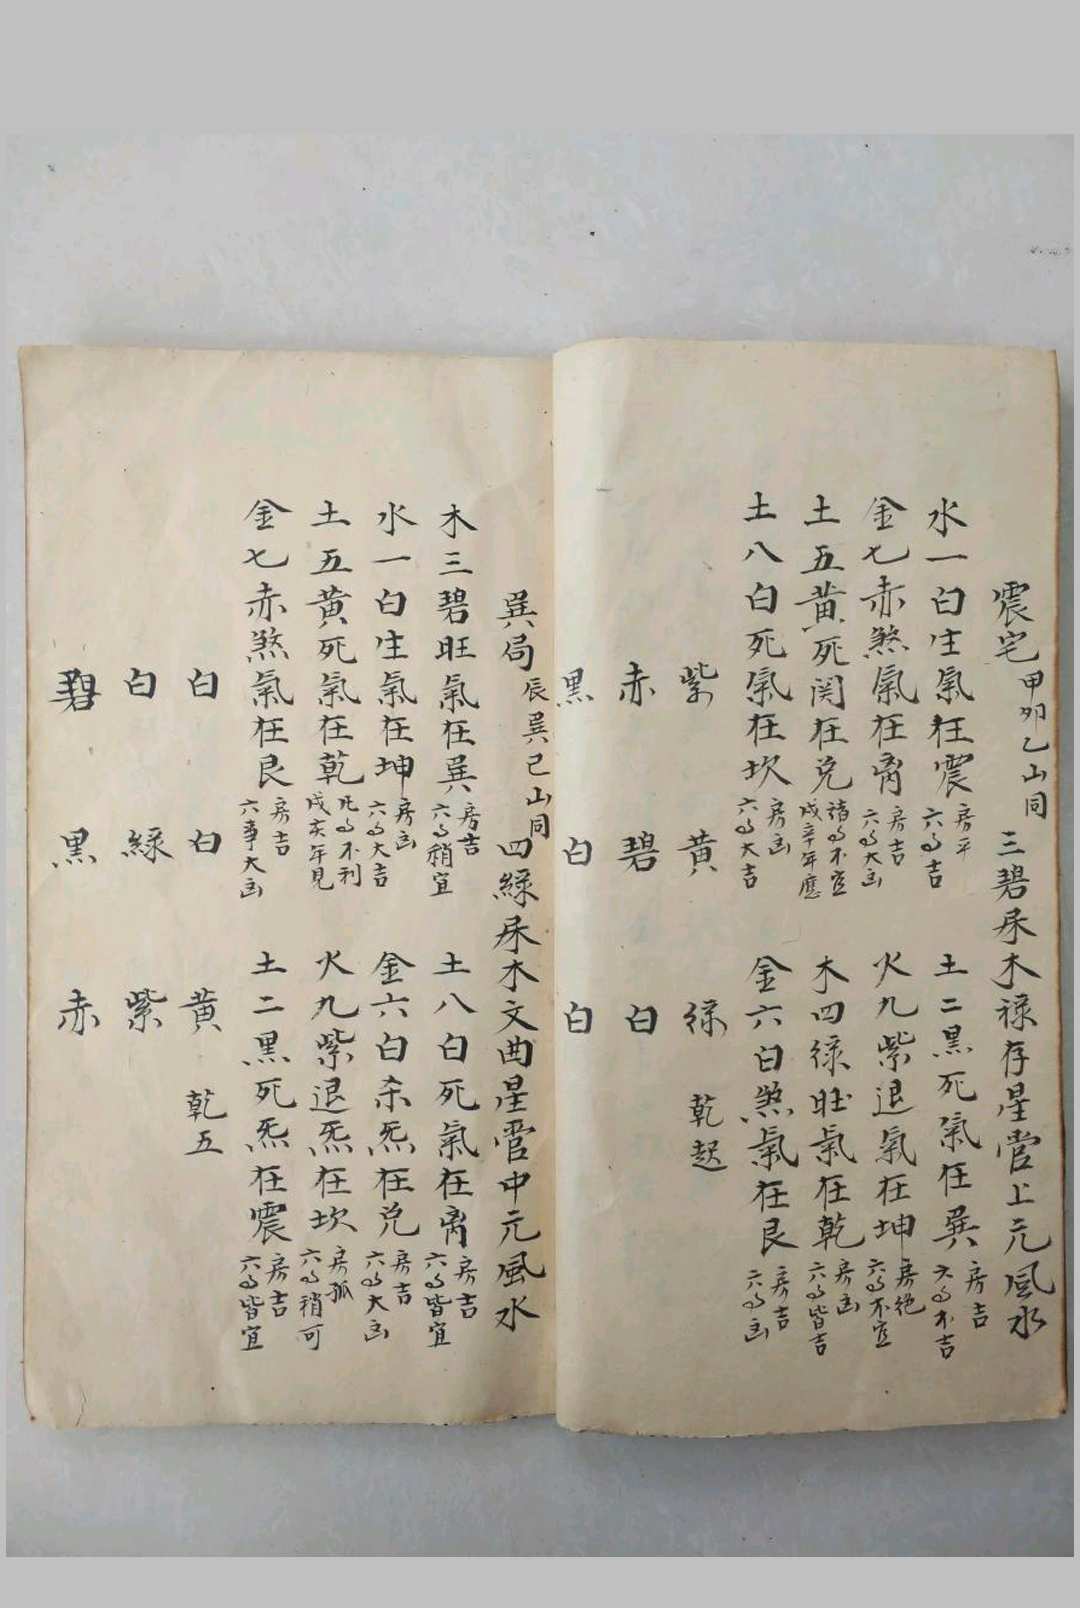 震宅 甲卯乙山同 三碧属木禄存星管上元風水
水一白生氣在震 房平 六事吉 土二黑死氣在巽 房吉 六事不吉
金七赤煞氣在离 房吉 六事大凶 火九紫退氣在坤 房絶 六事不宜
土五黄死関在兑 諸事不宜 戌辛年應 木四緑旺氣在乾 房凶 六事皆吉
土八白死氣在坎 房凶 六事大吉 金六白煞氣在艮 房吉 六事凶
紫 黄 緑 乾起
赤 碧 白
黒 白 白
巽局 辰巽巳山同 四緑属木文曲星管中元風水
木三碧旺氣在巽 房吉 六事稍宜 土八白死氣在离 房吉 六事皆宜
水一白生氣在坤 房凶 六事大吉 金六白杀炁在兑 房吉 六事大凶
土五黄死氣在乾 凡事不利 戌亥年見 火九紫退炁在坎 房孤 六事稍可
金七赤煞氣在艮 房吉 六事大凶 土二黑死炁在震 房吉 六事皆宜
白 白 黄 乾五
白 緑 紫
碧 黒 赤